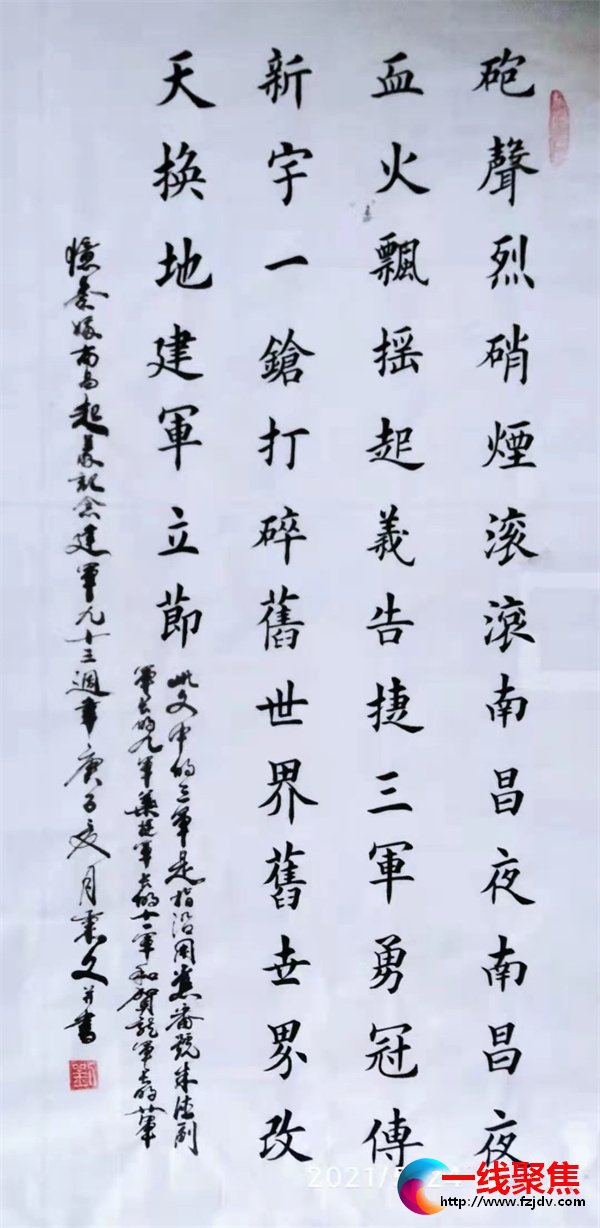 砲聲烈硝煙滚滚南昌夜南昌夜
血火飄揺起義告捷三軍勇冠傳
新宇一鎗打碎舊世界舊世界改
天換地建軍立節
此文中的三軍是指沿用舊番號朱德副
軍長的九軍葉挺軍長的十一軍和賀龍軍長的廿軍
憶秦娥南昌起義記念建軍九十三週年庚子夏月文并書
劉
2021/
一线聚焦
http://www.fzjdv.com